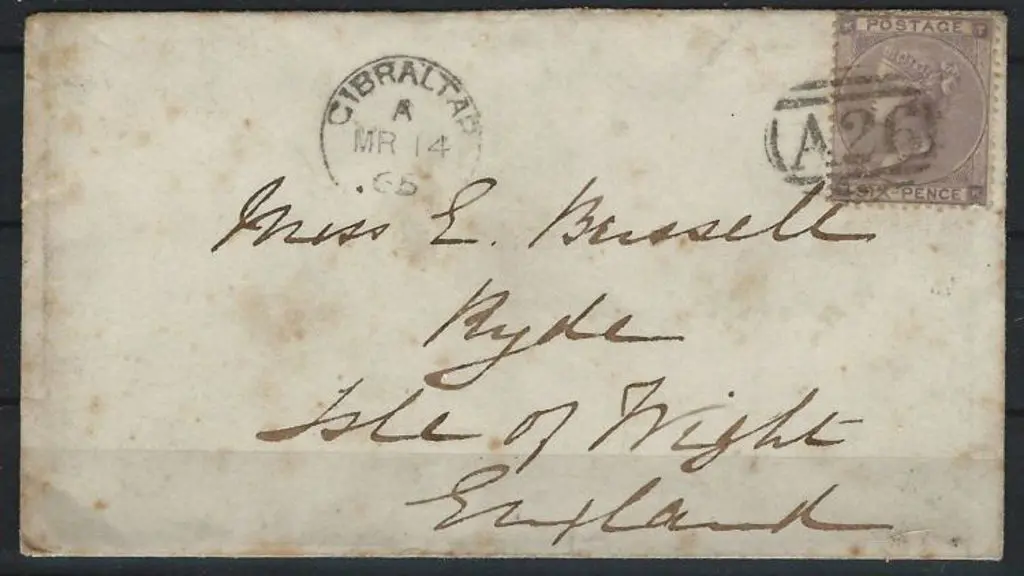 POSTAGE
GIBRALTAR
A
MR 14
65
A26
SIX PENCE
Miss E. Bussell
Ryde
Isle of Wight
England